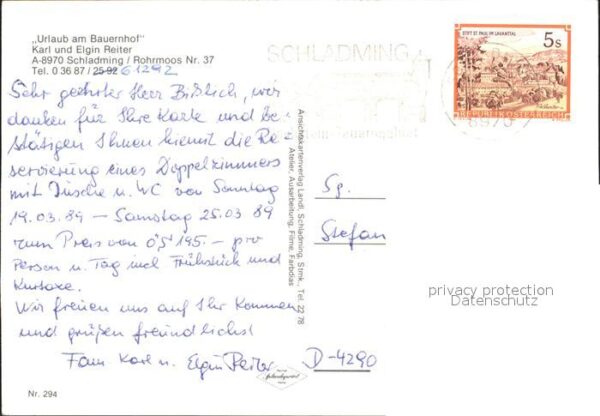 „Urlaub am Bauernhof"
Karl und Elgin Reiter
A-8970 Schladming / Rohrmoos Nr. 37
Tel. 0 36 87 / 25 92 61292
Sehr geehrter Herr Bißlich, wir
danken für Ihre Karte und be-
stätigen Ihnen hiemit die Re-
servierung eines Doppelzimmers
mit Dusche u. WC von Sonntag
19.03.89 – Samstag 25.03 89
zum Preis von öS 195.- pro
Person u. Tag incl Frühstück und
Kurtaxe.
Wir freuen uns auf Ihr Kommen
und grüßen freundlichst
Fam Karl u. Elgin Reiter
Nr. 294
Ansichtskartenverlag Landl, Schladming, Stmk., Tel. 22 78
Atelier, Ausarbeitung, Filme, Farbdias
SCHLADMING
STIFT ST. PAUL IM LAVANTTAL
5s
REPUBLIK ÖSTERREICH
8970
Sg.
Stefan
privacy protection
Datenschutz
D-4290